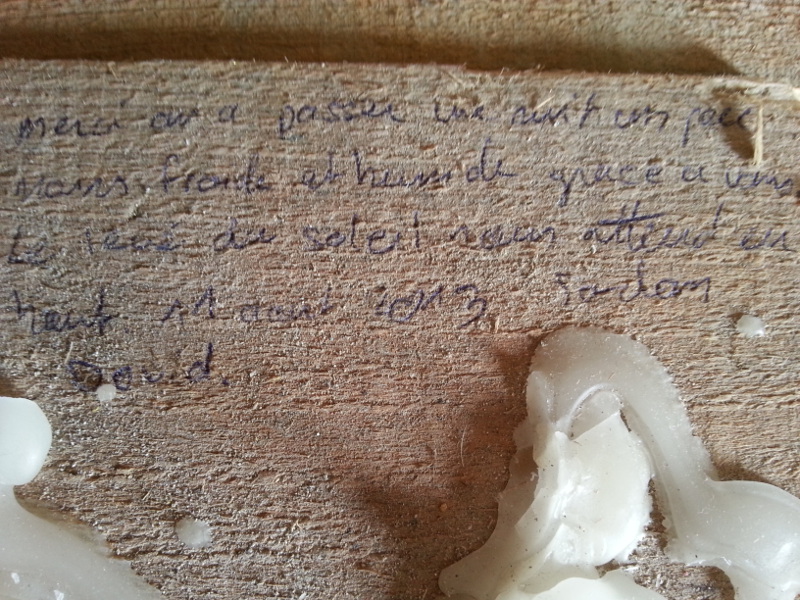 merci on a passer une nuit un peu
moins froide et humide grace a vous
Le levé du soleil nous attend en
haut 11 aout 2013 Jordan
David.